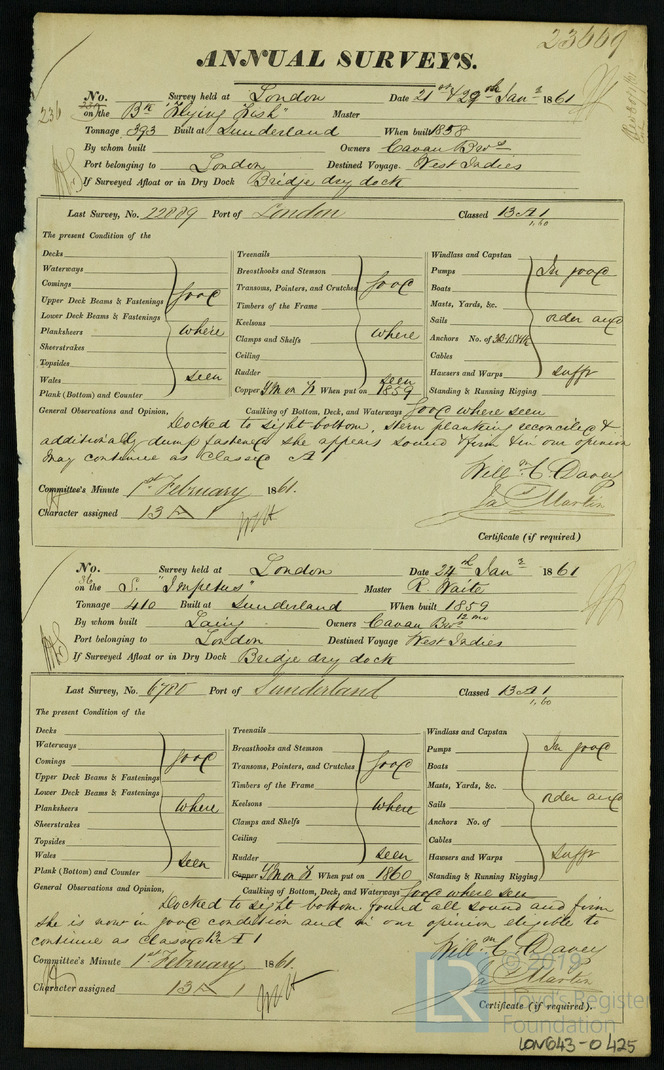 23669
ANNUAL SURVEYS.
No. Survey held at London Date 21st & 29th Jany 1861
236
on the Bk "Flying Fish" Master
Tonnage 393 Built at Sunderland When built 1858
By whom built Owners Cavan Bros
Port belonging to London Destined Voyage West Indies
If Surveyed Afloat or in Dry Dock Bridge dry dock
Last Survey, No. 22889 Port of London Classed 13 A 1
1.60
The present Condition of the
Decks
Waterways
Comings
Upper Deck Beams & Fastenings
Lower Deck Beams & Fastenings
Planksheers
Sheerstrakes
Topsides
Wales
Plank (Bottom) and Counter
good
where
seen
Treenails
Breasthooks and Stemson
Transoms, Pointers, and Crutches
Timbers of the Frame
Keelsons
Clamps and Shelfs
Ceiling
Rudder
good
where
seen
Copper Y/M on When put on 1859
Windlass and Capstan
Pumps
Boats
Masts, Yards, &c.
Sails
Anchors No. of
Cables
Hawsers and Warps
Standing & Running Rigging
In good
order and
sufft
General Observations and Opinion, Caulking of Bottom, Deck, and Waterways good where seen
Docked to sight bottom, stern planking reconciled &
additionally dump fastened she appears sound & firm & in our opinion
may continue as Classed A 1
Willm C. Davey
Jas Martin
Committee's Minute 1st February 1861.
Character assigned 13 A 1
Certificate (if required)
No. Survey held at London Date 24th Jany 1861
36
on the S. "Impetus" Master R. Waite
Tonnage 410 Built at Sunderland When built 1859
12 mo
By whom built Laing Owners Cavan Bros
Port belonging to London Destined Voyage West Indies
If Surveyed Afloat or in Dry Dock Bridge dry dock
Last Survey, No. 6780 Port of Sunderland Classed 13 A 1
1.60
The present Condition of the
Decks
Waterways
Comings
Upper Deck Beams & Fastenings
Lower Deck Beams & Fastenings
Planksheers
Sheerstrakes
Topsides
Wales
Plank (Bottom) and Counter
good
where
seen
Treenails
Breasthooks and Stemson
Transoms, Pointers, and Crutches
Timbers of the Frame
Keelsons
Clamps and Shelfs
Ceiling
Rudder
good
where
seen
Copper Y/M on When put on 1860
Windlass and Capstan
Pumps
Boats
Masts, Yards, &c.
Sails
Anchors No. of
Cables
Hawsers and Warps
Standing & Running Rigging
In good
order and
sufft
General Observations and Opinion, Caulking of Bottom, Deck, and Waterways good where seen
Docked to sight bottom found all sound and firm
she is now in good condition and in our opinion eligible to
continue as Classed 13 A 1
Willm C. Davey
Jas Martin
Committee's Minute 1st February 1861.
Character assigned 13 A 1
Certificate (if required).
LR © 2019
Lloyd's Register
Foundation
LON643-0425